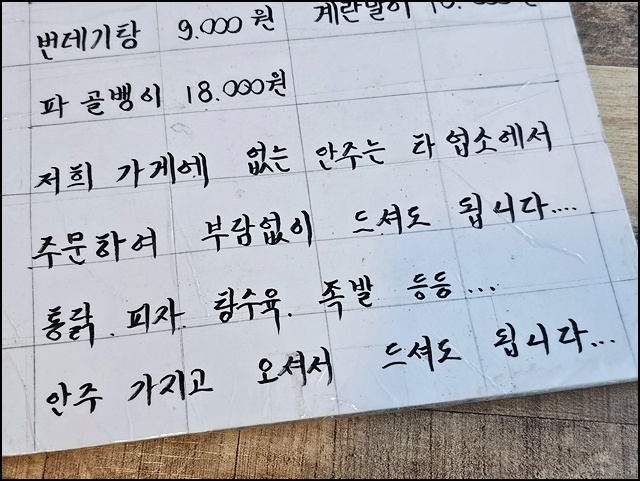 번데기탕 9.000원 계란말이
파 골뱅이 18.000원
저희 가게에 없는 안주는 타 업소에서
주문하여 부담없이 드셔도 됩니다....
통닭. 피자. 탕수육. 족발 등등...
안주 가지고 오셔서 드셔도 됩니다...